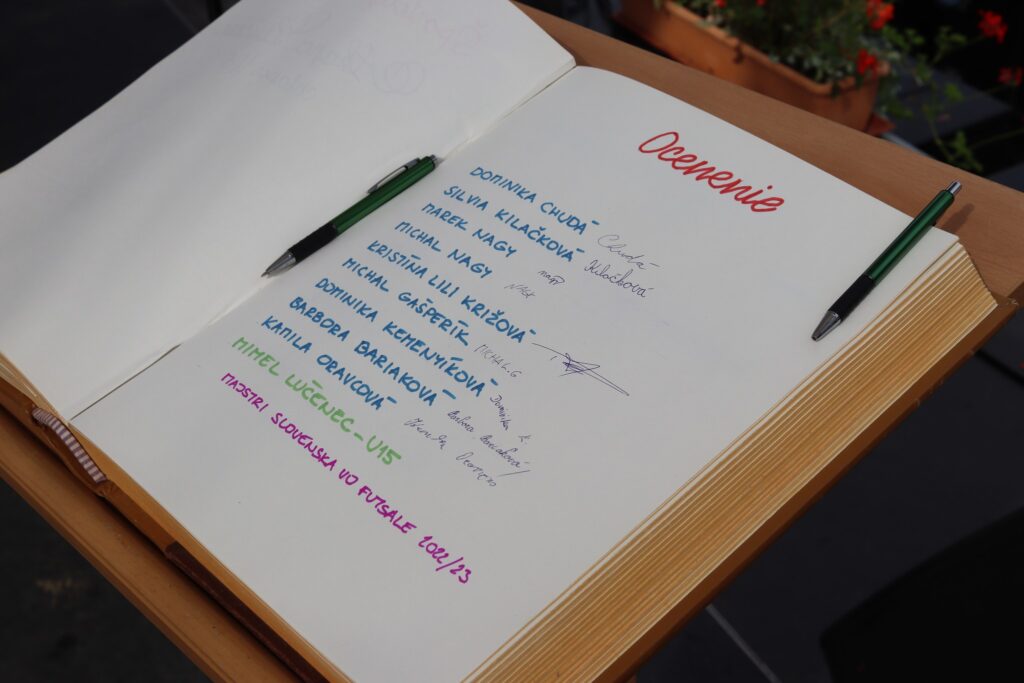 Ocenenie
DOMINIKA CHUDÁ Chudá
SILVIA KILAČKOVÁ Kilačková
MAREK NAGY nagy
MICHAL NAGY NAGY
KRISTÍNA LILI KRIŽOVÁ
MICHAL GAŠPERÍK MICHAL.G
DOMINIKA KEMENYÍKOVÁ Dominika K.
BARBORA BARIAKOVÁ Barbora Bariaková
KAMILA ORAVCOVÁ Kamila
MIMEL LUČENEC - U15
MAJSTRI SLOVENSKA VO FUTSALE 2022/23